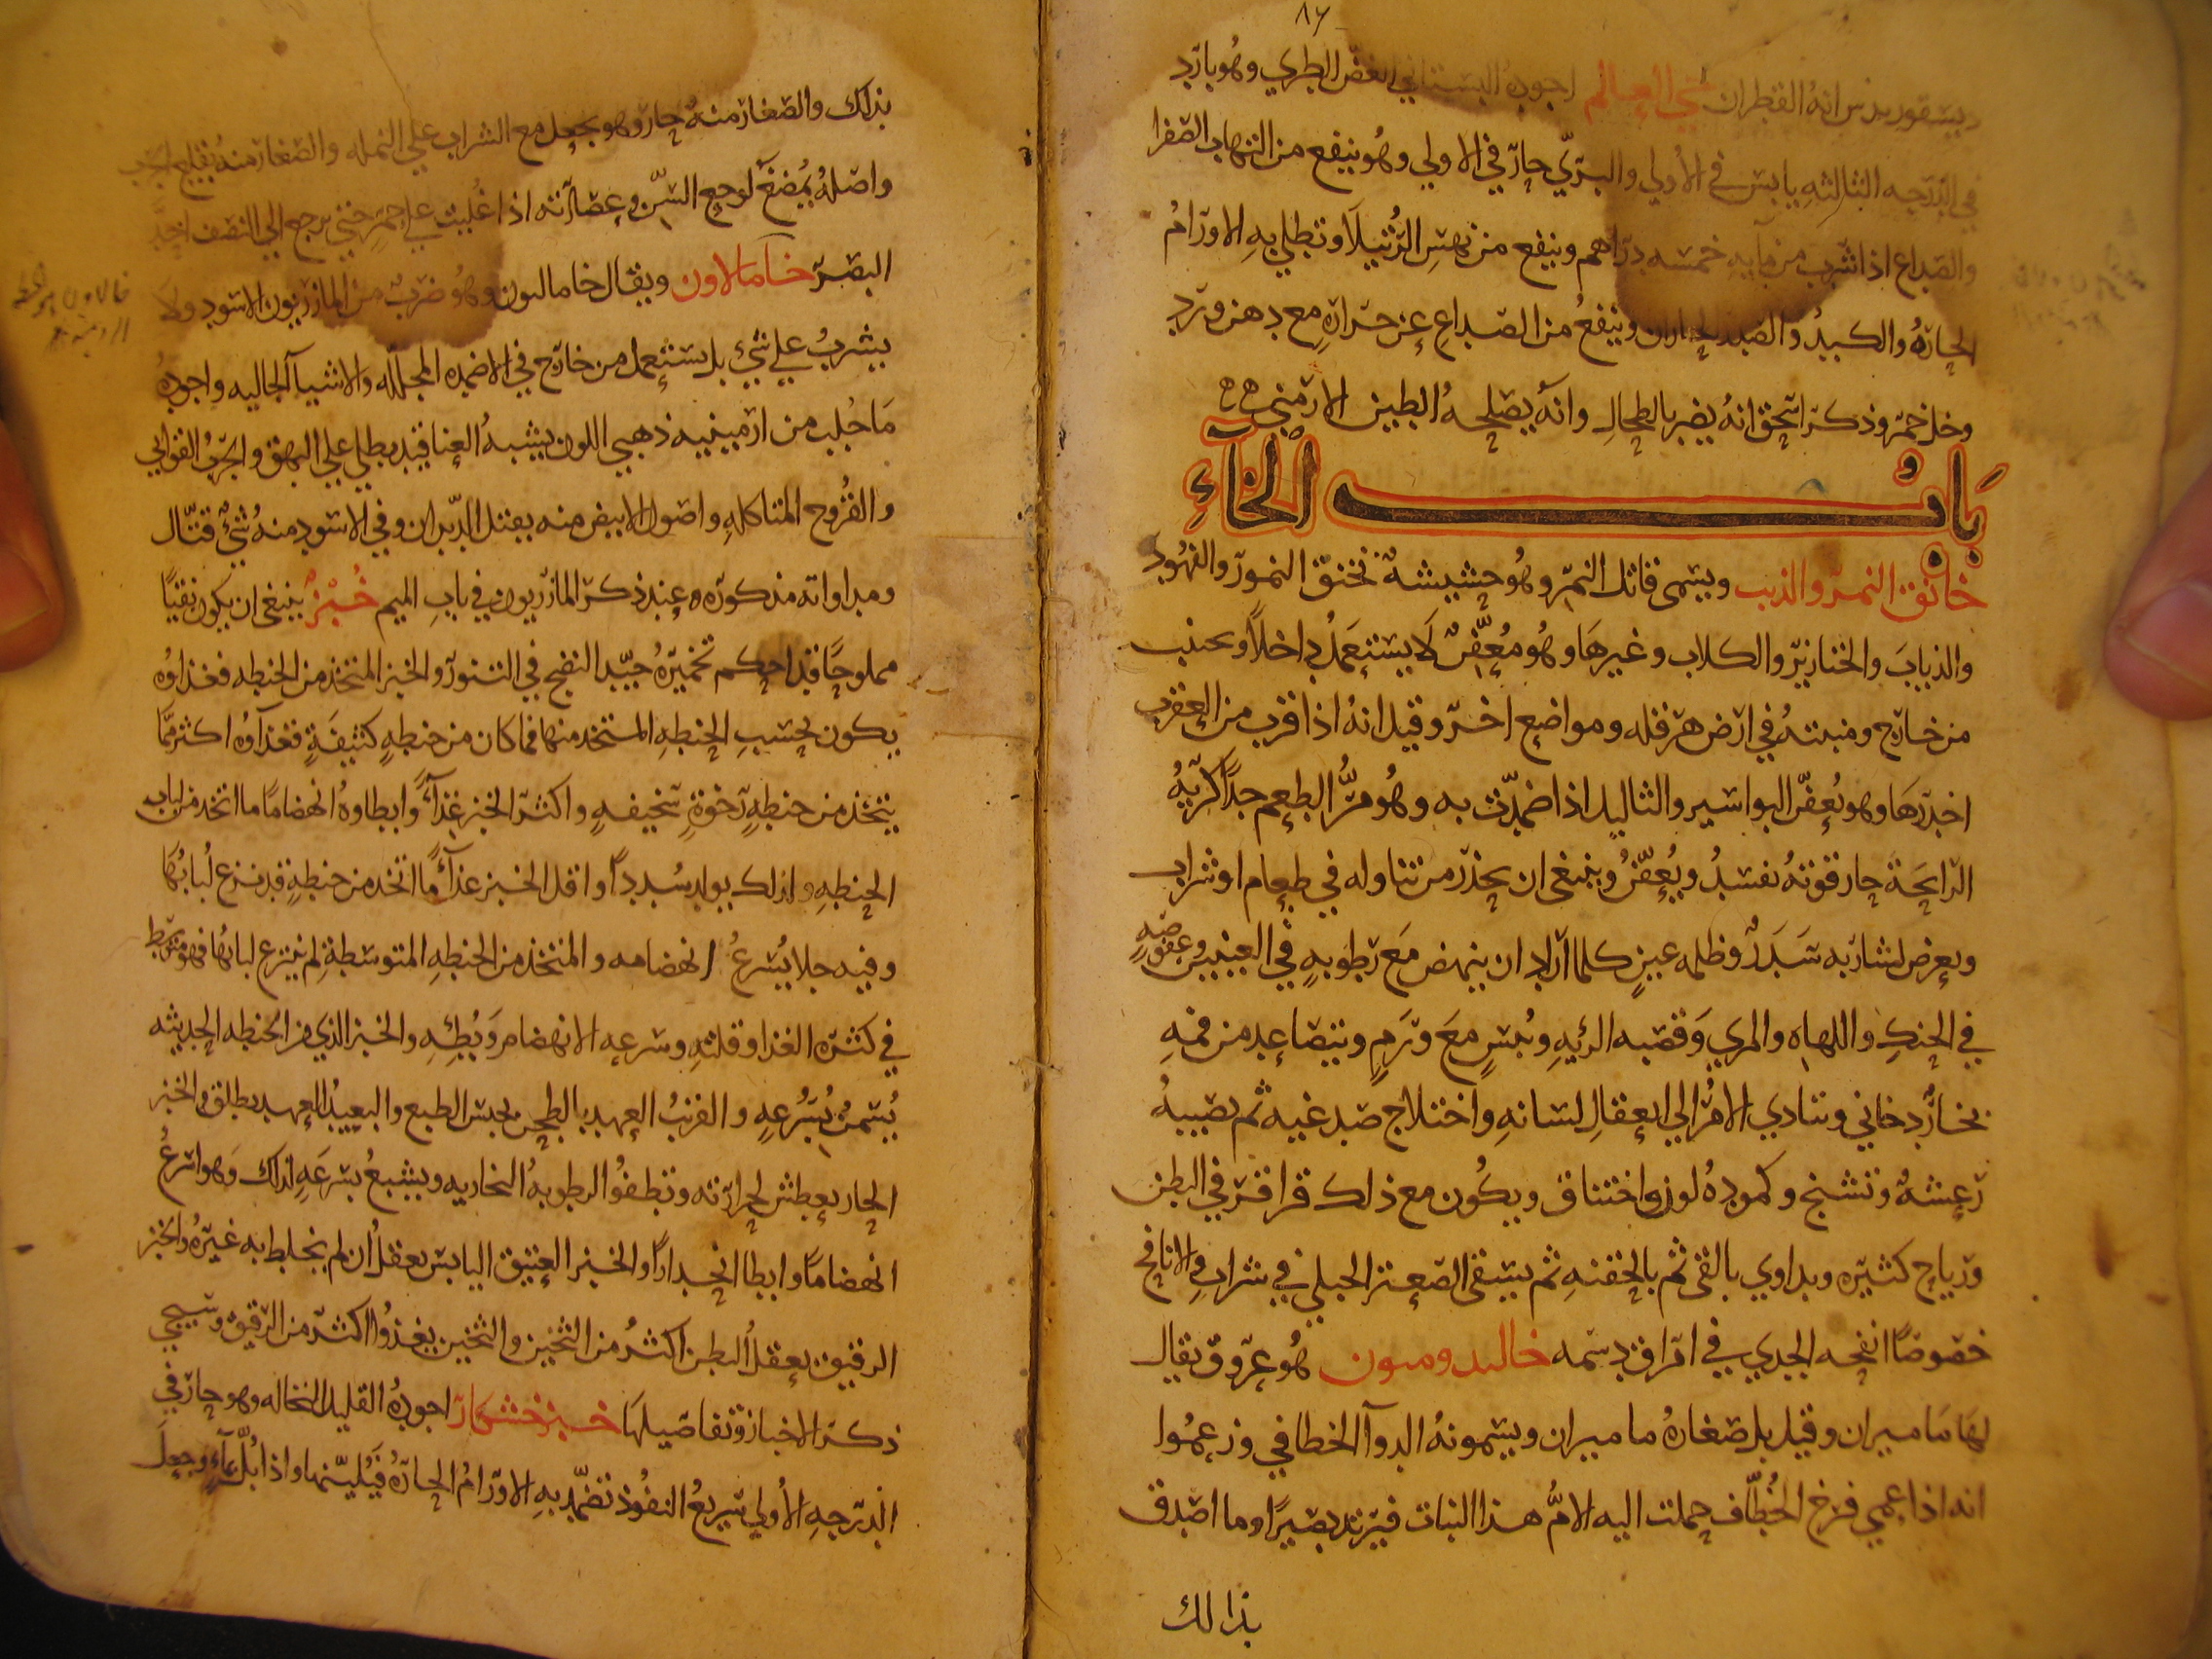 ٨٦
ديسقوريدس انه القطران حي العالم اجوده البستاني الغض الطري وهو بارد
في الدرجه الثالثه يابس في الأولي والبري حار في الاولي وهو ينفع من التهاب الصفرا
والصداع اذا شرب من مايه خمسه دراهم وينفع من نهش الرُّتيلا وتطلي به الاورام
الحاره والكبد والصدر الحاران وينفع من الصداع عن حراره مع دهن ورد
وخل خمر وذكر اسحق انه يضر بالطحال وانه يصلحه الطين الارمني
باب الخاء
خانق النمر والذيب ويسمى قاتل النمر وهو حشيشة تخنق النمور والفهود
والذياب والخنازير والكلاب وغيرها وهو معفّن لا يستعمل داخلاً ويجتنب
من خارج ومنبته في ارض هرقله ومواضع اخر وقيل انه اذا قرب من العقرب
اخدرها وهو يعفن البواسير والثاليل اذا ضمدت به وهو مرّ الطعم جداً كريه
الرايحة حار قوته تفسد ويعفن وينبغى ان يحذر من تناوله في طعام او شراب
ويعرض لشاربه سَدَر وظلمه عين كلما اراد ان ينهض مع رطوبه في العينين وعفوصه
في الحنك واللهاه والمري وقصبه الرئيه ويبس مع ورم ويتصاعد من فمه
بخار دخاني ويتادي الامر الي اعتقال لسانه واختلاج صدغيه ثم يصيبه
رعشه وتشنج وكموده لون واختناق ويكون مع ذلك قراقر في البطن
ورياح كثيره ويداوي بالقى ثم بالحقنه ثم يسقى الصعتر الجبلي في شراب والانافح
خصوصاً انفحه الجدي في امراق دسمه خاليدوميون هو عروق يقال
لها ماميران وقيل بل صغاره ماميران ويسمونه الدوآ الخطافي وزعموا
انه اذا عمي فرخ الخُطّاف حملت اليه الامُّ هذا النبات فيرتد بصيراً وما اصدق
بذالك
بذلك والصغار منه حار وهو يجعل مع الشراب علي النمله والصغار منه يقلع
واصله يُمضغ لوجع السّن وعصارته اذا غليت علي جمر حتي يرجع الي النصف احدّ
البصر خامالاون ويقال خامالىون وهو ضرب من المازريون الاسود ولا
يشرب علي شيْ بل يستعمل من خارج في الاضمده المحلله والاشيآ الجاليه واجوده
مَا جُلب من ارمينيه ذهبي اللون يشبه العنا قد يطلي علي البهق والجرب والقوابي
والقروح المتاكله واصول الابيض منه يقتل الديدان وفي الاسود منه شيٌ قتّال
ومداواته مذكوره عند ذكر المازريون في باب الميم خُبْز ينبغى ان يكون نقيّاً
مملوحاً قد احكم تخميره جيّد النضج في التنور والخبز المتخذ من الحنطه فغذاوه
يكون بحسب الحنطه المتخذ منها فما كان من حنطهٍ كثيفةٍ فغذآوه اكثر ممّا
يتخذ من حنطهٍ رخوةٍ سخيفهٍ واكثر الخبز غذآءً وابطاوه انهضاماً ما اتخذ من لباب
الحنطه ولذلك يولد سُدداً واقل الخبز غذآءً ما اتخذ من حنطهٍ قد نزع لُبابُها
وفيه جلا يُسرعُ انهضامه والمتخذ من الحنطه المتوسطة لم ينزع لبابُها فهو متوسط
في كثره الغذا وقلته وسرعه الانهضام وَبُطئِهِ والخبز الذي من الحنطه الحديثه
يُسمن بُسرعه والقريبُ العهد بالطحن يحبس الطبع والبعيد العهد يطلق والخبز
الحار يعطش لحرارته وتطفوا الرطوبه البخاريه ويشبع بسرعه لذلك وهو اسرعُ
انهضاماً وابطا انحداراً والخبز العتيق اليابس يعقل ان لم يخلط به غيره والخبز
الرقيق يعقل البطن اكثر من الثخين والثخين يغذوا اكثر من الرقيق وسيجي
ذكر الاخباز وتفاصيلها خبز خشكار اجوده القليل النخاله وهو حار في
الدرجه الأولي سريع النفوذ تضمّد به الاورام الحاره فيُليّنها واذا بُلّ بمآءٍ وجعل